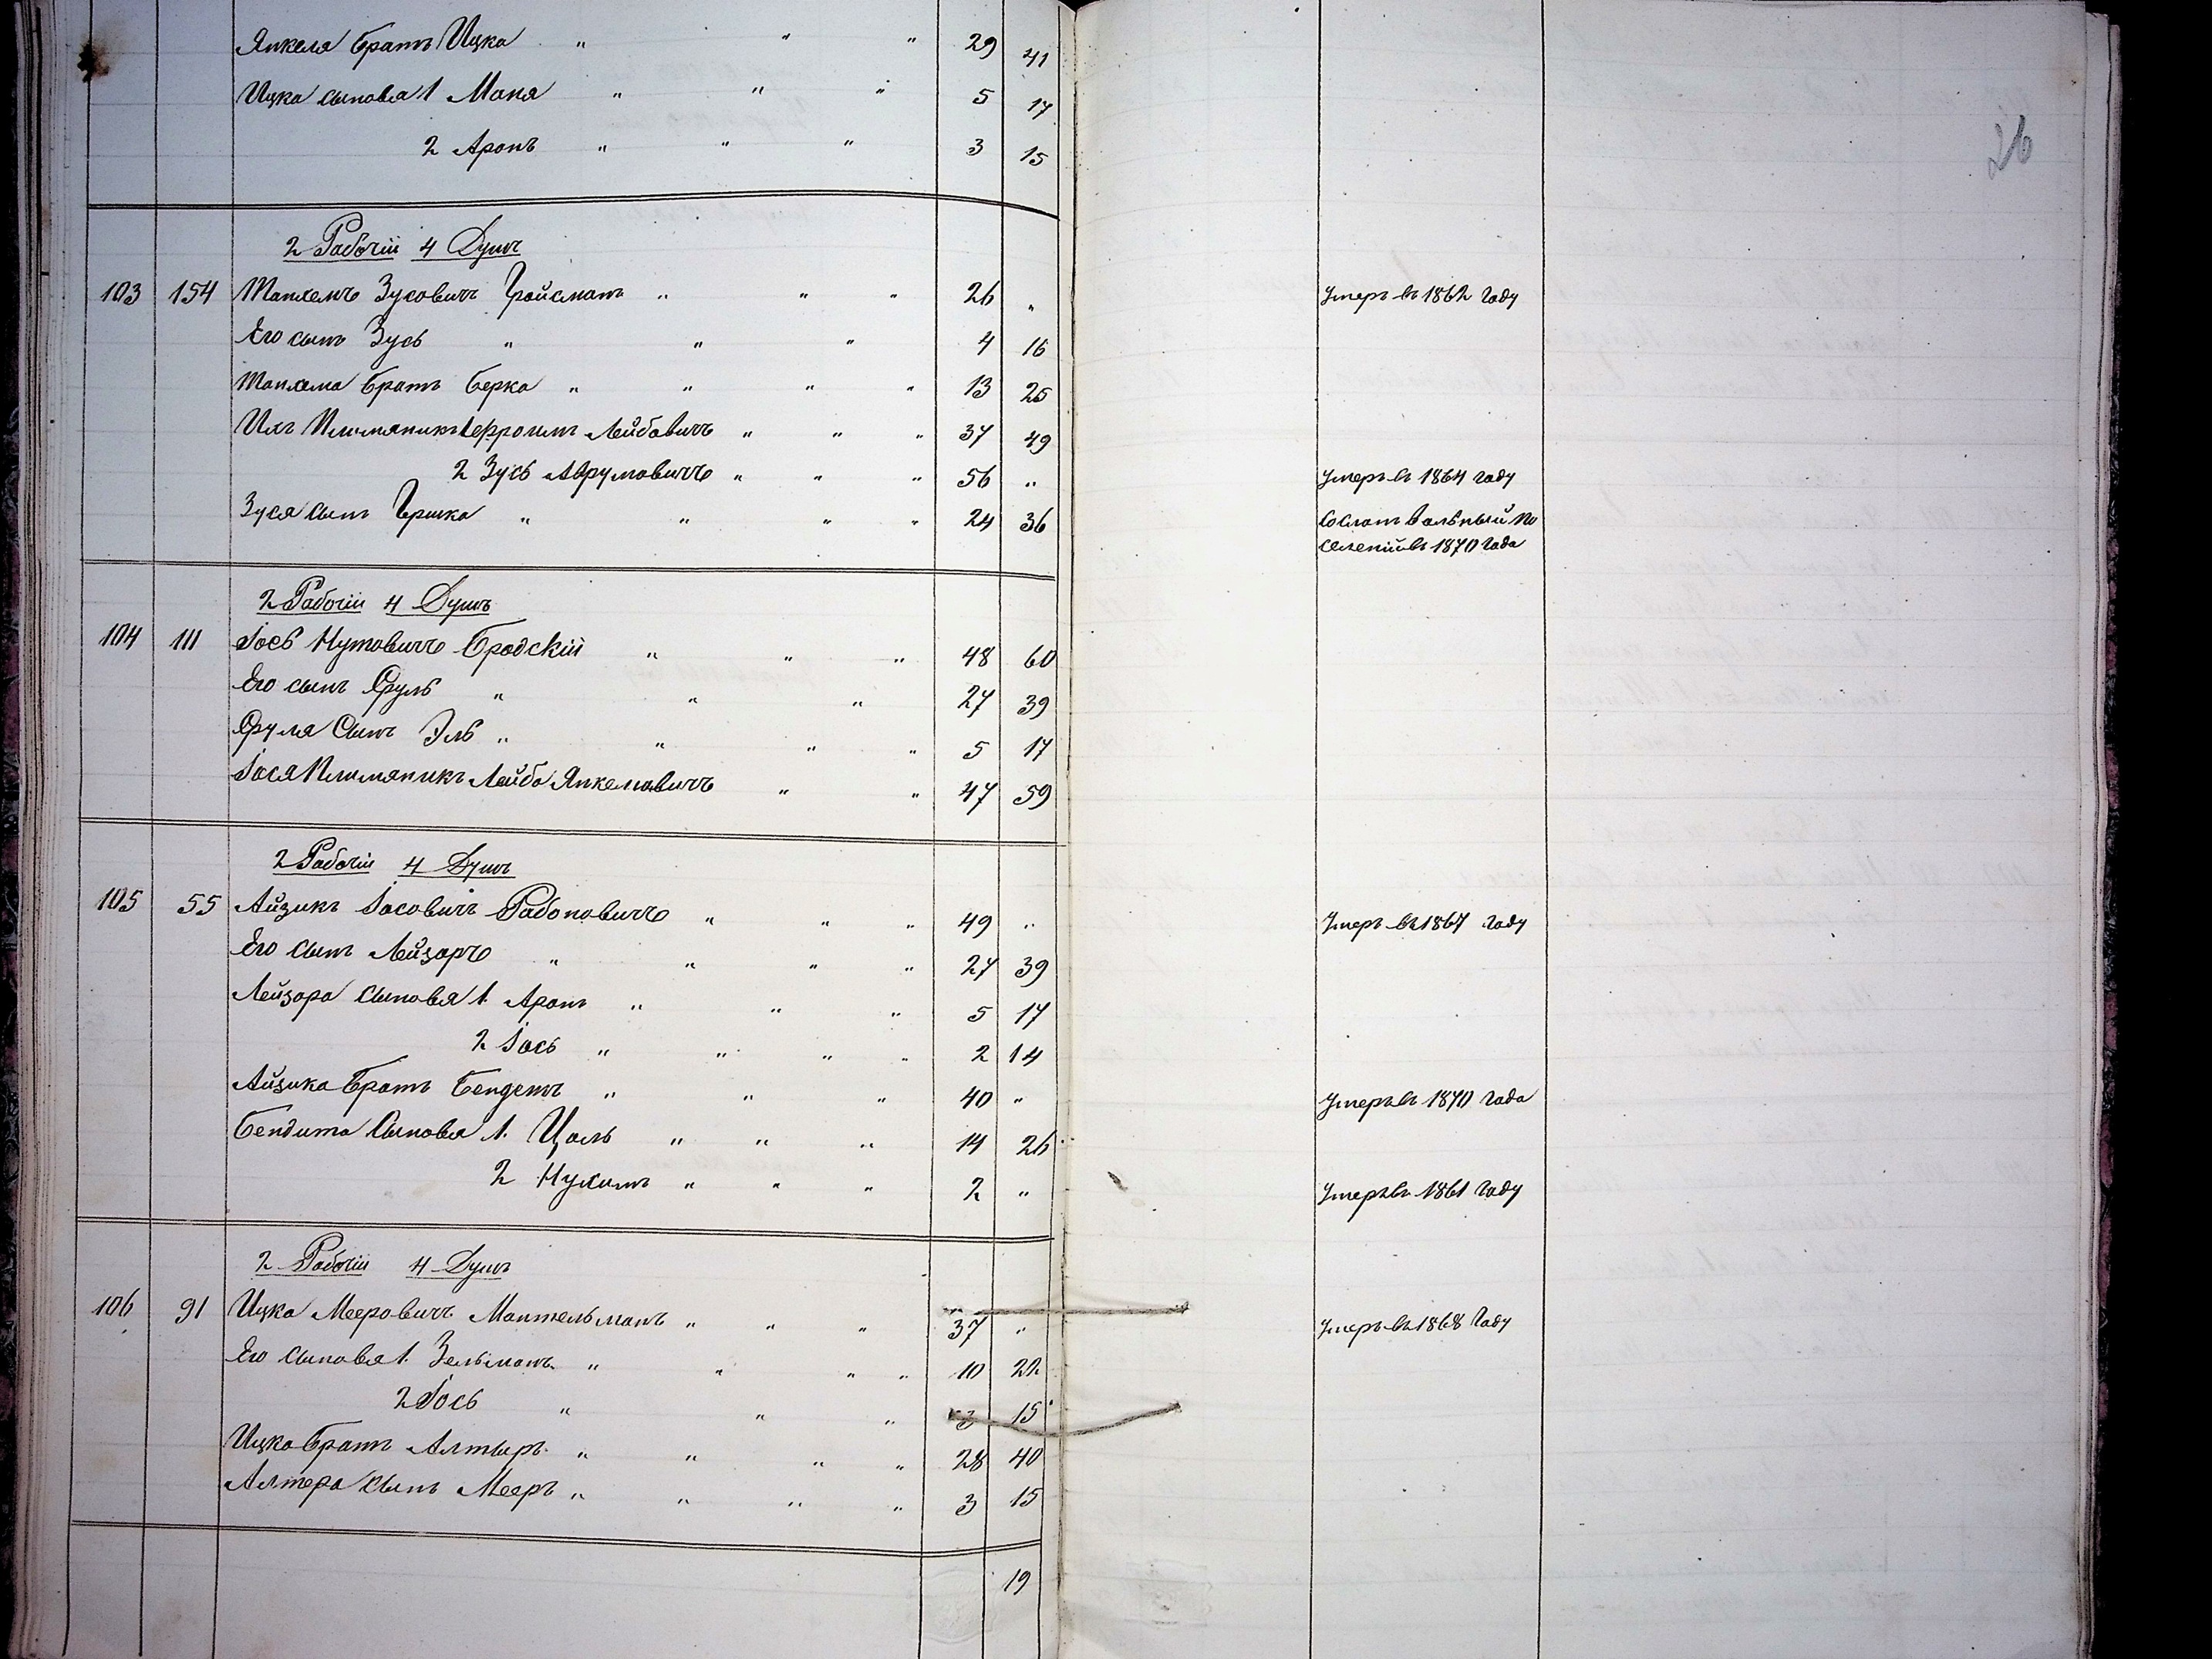 Янкеля братъ Ицко " " " 29 41
Ицка сыновья 1 Маня " " " 5 17
2 Аронъ " " " 3 15
26
2 Рабочіи 4 Душъ
103 154 Манхемъ Зусовичъ Гройсманъ " " " 26 " Умеръ въ 1862 Году
Его сынъ Зусь " " " 4 16
Манхема братъ Берко " " " " 13 25
Ихъ Племяникъ 1 Ефроимъ Лейбовичъ " " " 37 49
2 Зусь Аврумовичъ " " " 56 " Умеръ въ 1864 году
Зуся сынъ Гершко " " " " 24 36 Сосланъ вольный по
селеніи въ 1870 Года
2 Рабочіи 4 Душъ
104 111 Іось Нутовичъ Бродскій " " " 48 60
Его сынъ Сруль " " " 27 39
Сруля Сынъ Эль " " " " 5 17
Іося Племяникъ Лейба Янкелювичъ " " 47 59
2 Рабочіи 4 Душъ
105 55 Айзикъ Іосовичъ Рабоновичъ " " " 49 " Умеръ въ 1867 году
Его сынъ Лейзоръ " " " " 27 39
Лейзора сыновья 1. Аронъ " " " 5 17
2 Іось " " " " 2 14
Айзика братъ Бендетъ " " " 40 " Умеръ въ 1870 года
Бендита Сыновья 1. Цаль " " " 14 26
2 Нухимъ " " " 2 " Умеръ въ 1861 Году
2 Рабочіи 4 Душъ
106 91 Ицко Мееровичъ Мантельманъ " " " 37 " Умеръ въ 1868 Году
Его сыновья 1. Зельманъ " " " " 10 22
2 Іось " " " 3 15
Ицка братъ Алтыръ " " " " 28 40
Алтера сынъ Мееръ " " " " 3 15
19